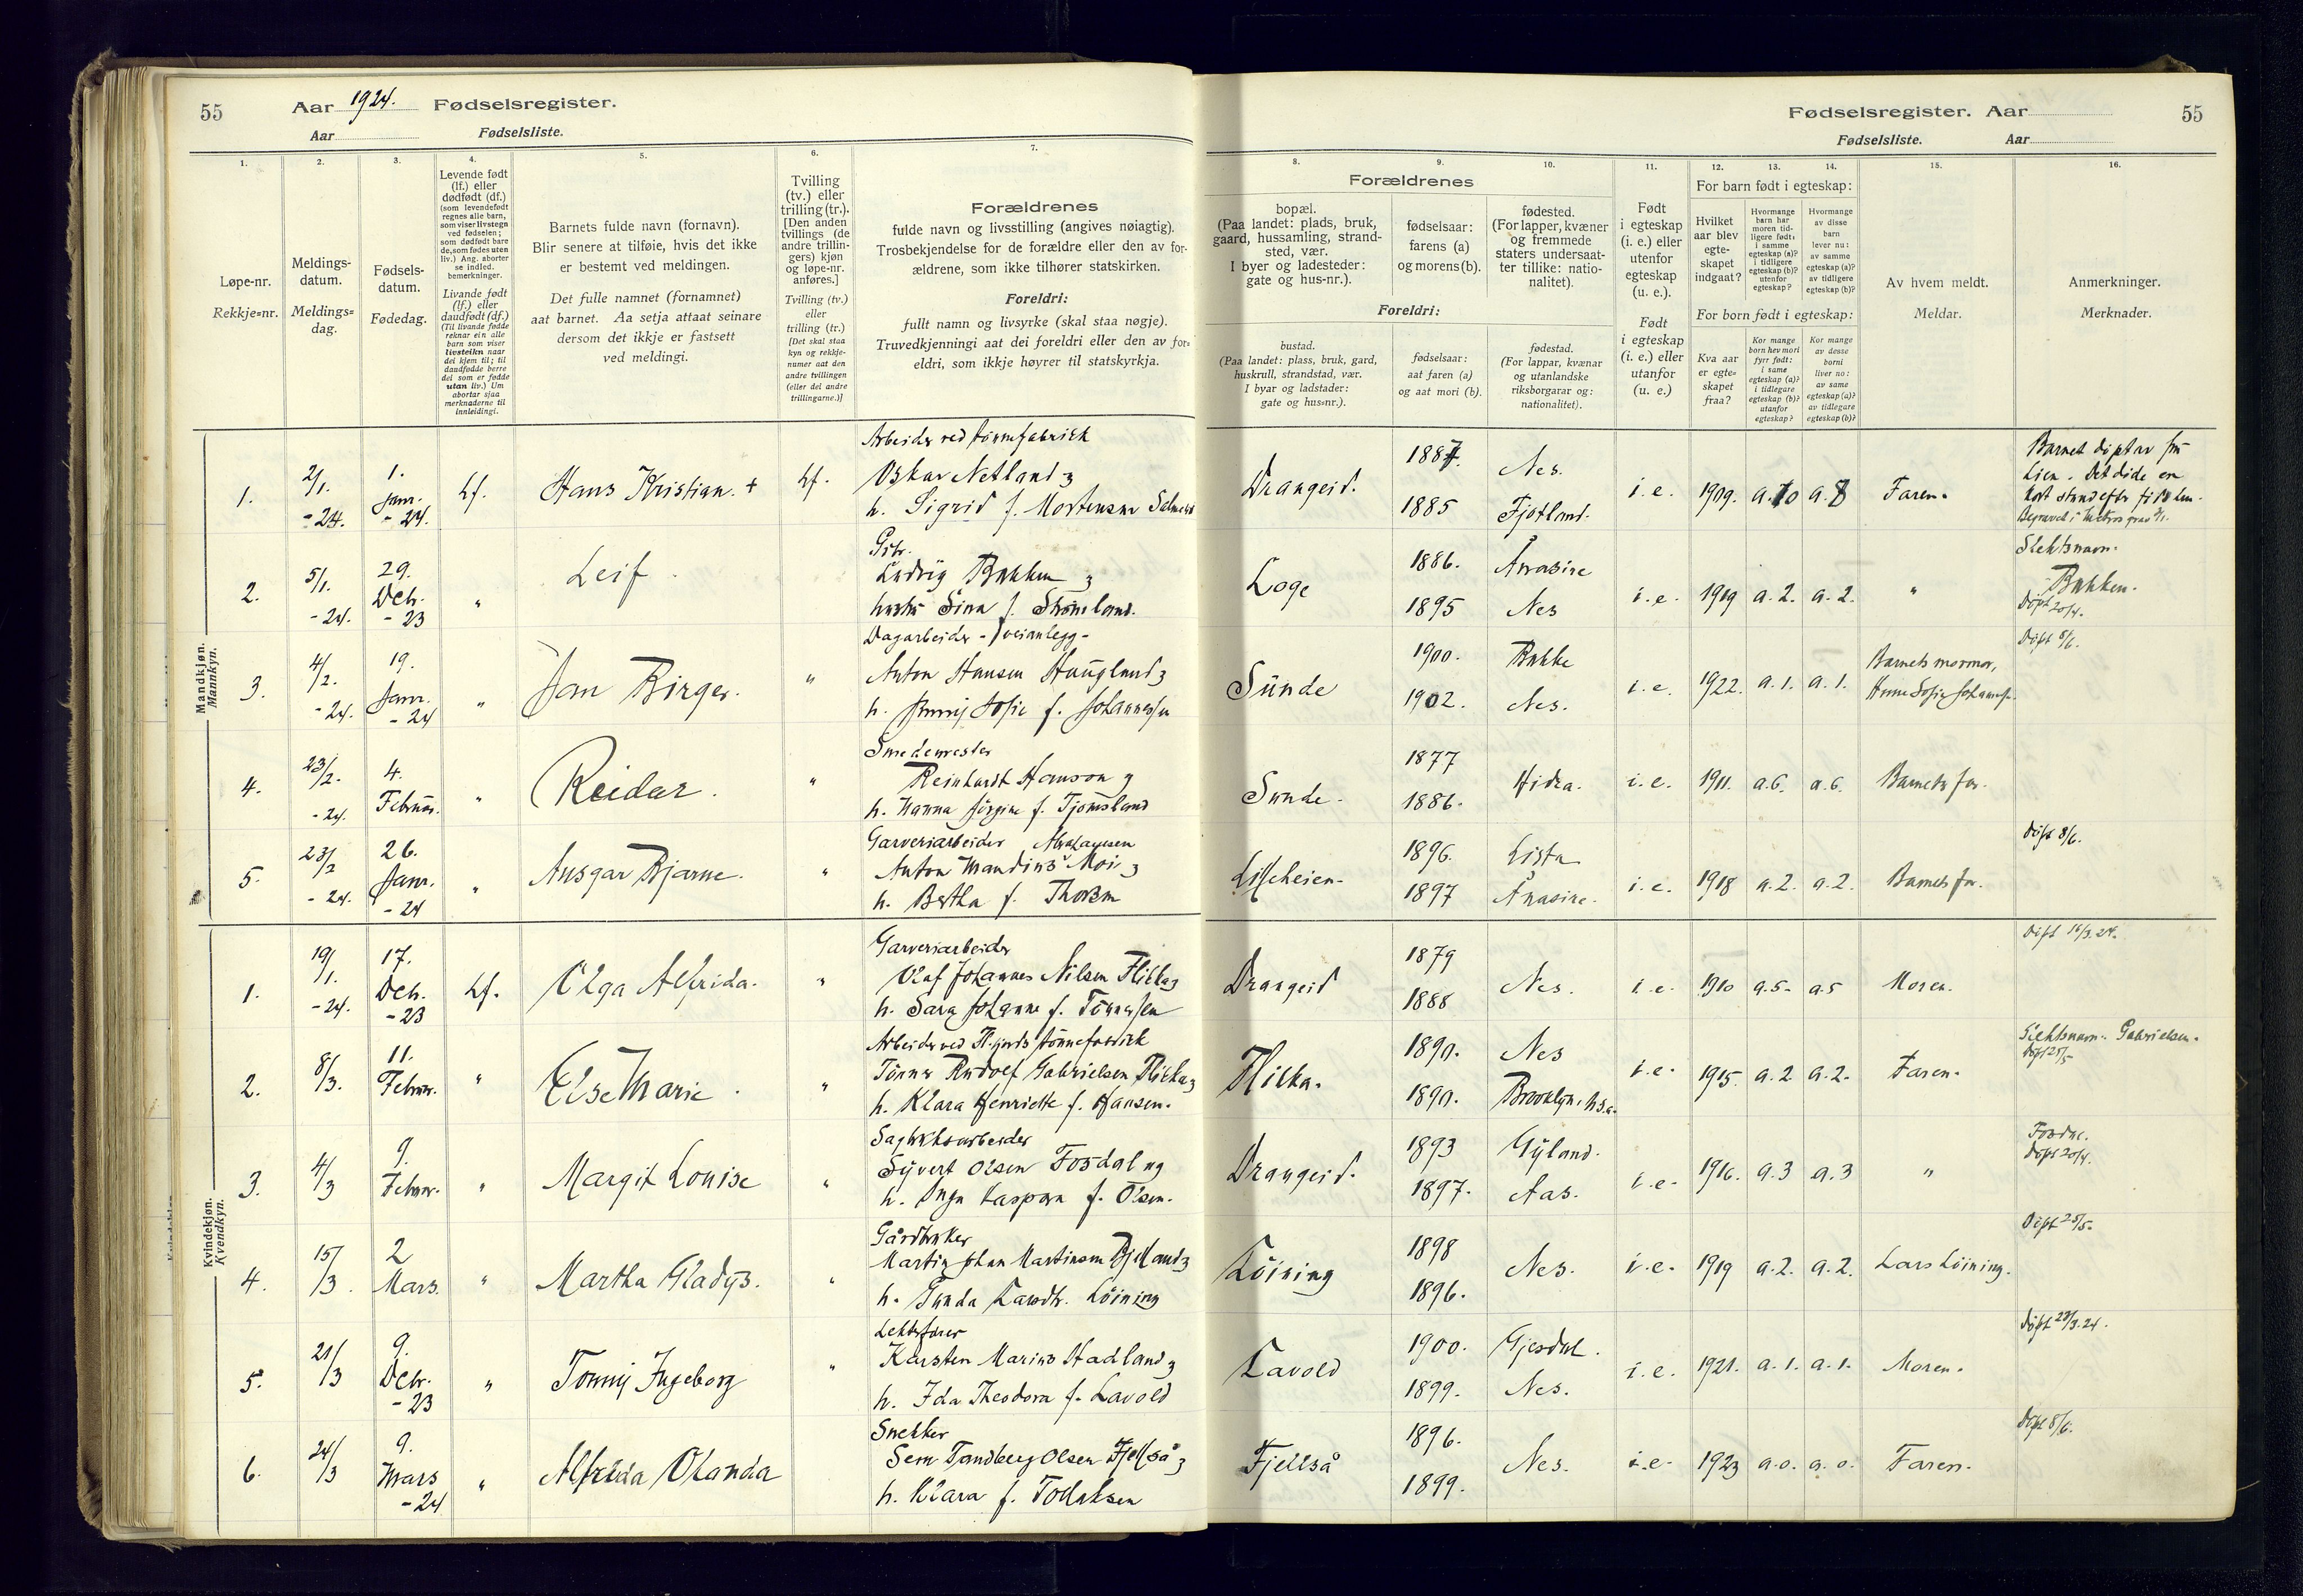 55 Aar 1924. Fødselsregister.
Aar Fødselsliste.
Fødselsregister. Aar 55
Fødselsliste. Aar
1. 2. 3. 4. 5. 6. 7.
8. 9. 10. 11. 12. 13. 14. 15. 16.
Løpe-nr.
Rekkje=nr.
Meldings-
datum.
Meldings=
dag.
Fødsels-
datum.
Fødedag.
Levende født
(lf.) eller
dødfødt (df.)
(som levendefødt
regnes alle barn,
som viser livstegn
ved fødselen;
som dødfødt bare
de, som fødes uten
liv.) Ang. aborter
se indled.
bemerkninger.
Livande født
(lf.) eller
daudfødt (df.)
(Til livande fødde
reknar ein alle
barn som viser
livsteikn naar
dei kjem til; til
daudfødde berre
dei som er fødde
utan liv.) Um
abortar sjaa
merknaderne til
innleidingi.
Barnets fulde navn (fornavn).
Blir senere at tilføie, hvis det ikke
er bestemt ved meldingen.
Det fulle namnet (fornamnet)
aat barnet. Aa setja attaat seinare
dersom det ikkje er fastsett
ved meldingi.
Tvilling
(tv.) eller
trilling (tr.).
[Den anden
tvillings (de
andre trillin-
gers) kjøn
og løpe-nr.
anføres.]
Tvilling (tv.)
eller
trilling (tr.)
[Det skal staa
kyn og rekkje-
numer aat den
andre tvillingen
(eller dei andre
trillingarne.)]
Forældrenes
fulde navn og livsstilling (angives nøiagtig).
Trosbekjendelse for de forældre eller den av for-
ældrene, som ikke tilhører statskirken.
Foreldri:
fullt namn og livsyrke (skal staa nøgje).
Truvedkjenningi aat dei foreldri eller den av for-
eldri, som ikkje høyrer til statskyrkja.
Forældrenes
bopæl.
(Paa landet: plads, bruk,
gaard, hussamling, strand-
sted, vær.
I byer og ladesteder:
gate og hus-nr.).
fødselsaar:
farens (a)
og morens (b).
fødested.
(For lapper, kvæner
og fremmede
staters undersaat-
ter tillike: natio-
nalitet).
Foreldri:
bustad.
(Paa landet: plass, bruk, gard,
huskrull, strandstad, vær.
I byar og ladstader:
gate og hus=nr.).
fødselsaar:
aat faren (a)
og aat mori (b).
fødestad.
(For lappar, kvænar
og utanlandske
riksborgarar og:
nationalitet).
Født
i egteskap
(i. e.) eller
utenfor
egteskap
(u. e.).
Født
i egteskap
(i. e.) eller
utanfor
(u. e.)
For barn født i egteskap:
Hvilket
aar blev
egte-
skapet
indgaat?
Hvormange
barn har
moren tid-
ligere født:
i samme
egteskap (a)?
i tidligere
egteskap (b)?
utenfor
egteskap?
Hvormange
av disse
barn
lever nu:
av samme
egteskap (a)?
av tidligere
egteskap (b)?
For born født i egteskap:
Kva aar
er egte=
skapet
fraa?
Kor mange
born hev mori
fyrr født:
i same
egteskap (a)?
i tidlegare
egteskap (b)?
utanfor
egteskap?
Kor mange
av desse
borni
liver no:
av same
egteskap (a)?
av tidlegare
egteskap (b)?
Av hvem meldt.
Meldar.
Anmerkninger.
Merknader.
Mandkjøn.
Mannkyn.
1. 2/1. -24. 1. Janr. -24. Lf. Hans Kristian. + Lf. Arbeider ved tønnefabrikk
Oskar Netland og
h. Sigrid f. Mortensen
Drangeid. 1887. 1885 Nes. Fjotland. i. e. 1909. a. 10 a. 8 Faren.
2. 5/1. -24. 29. Dcb. -23 " Leif.
Ludvig Bakken og
hustru Sina f. Strømland.
Loge 1886. 1895 Ånasire Nes i. e. 1919 a. 2. a. 2. "
Slektsnavn.
Bakken.
Døpt 20/4.
3. 4/2. -24. 19. Janr. -24 " Jan Birger. " Dagarbeider - veianlegg -
Anton Hansen Haugland og
h. Jenny Sofie f. Johannessen
Sunde 1900. 1902. Bakke Nes. i. e. 1922. a. 1. a. 1. Barnets mormor,
Døpt 5/6.
4. 23/2. -24. 4. Februar. " Reidar. " Smedemester
Reinhardt Hanson og
h. Hanna Jørgine f. Tjomsland
Sunde. 1877 1886. Hidra. i. e. 1911. a. 6. a. 6. Barnets far.
5. 23/2 -24. 26. Janr. -24 " Ansgar Bjarne. " Garveriarbeider Abrahamsen
Anton Mandius Moi og
h. Bertha f. Thorsen
Liknheien. 1896. 1897 Lista Ånasire. i. e. 1918 a. 2. a. 2. Barnets far.
Døpt 8/6.
Kvindekjøn.
Kvendkyn.
1. 19/1. -24. 17. Dcb. -23 Lf. Olga Alfrida. " Garveriarbeider
Olaf Johannes Nilsen Flikka og
h. Sara Johanne f. Tønnessen
Drangeid 1879 1888 Nes. i. e. 1910 a. 5. a. 5 Moren.
Døpt 16/3. 24.
2. 8/3. 11. Februar. " Else Marie. " Arbeider ved Fl.fjords tønnefabrikk
Tønnes Rudolf Gabrielsen Flikka og
h. Klara Henriette f. Hansen.
Flikka. 1890. 1890. Nes Brooklyn. U.S.A. i. e. 1915. a. 2 a. 2. Faren.
Slektsnavn. Gabrielsen.
Døpt 25/5
3. 4/3 9. Februar. " Margit Louise " Sagbruksarbeider
Sijvert Olsen Fosdal og
h. Inga Kaspara f. Olsen.
Drangeid. 1893 1897. Gyland. Aas. i. e. 1916. a. 3 a. 3 "
Fosdal.
Døpt 20/4.
4. 15/3. 2 Mars. " Martha Gladys. " Gårdbruker
Martin Johan Martinsen Bjelland og
h. Gunda Larsdtr. Løining
Løining 1898 1896. Nes. i. e. 1919 a. 2. a. 2. Lars Løining.
Døpt 25/5.
5. 21/3 9. Dcb. -23 " Tommy Ingeborg "
Karsten Marius Stadland og
h. Ida Theodora f. Lavold
Lavold 1900. 1899. Gjesdal. Nes. i. e. 1921. a. 1. a. 1. Moren.
Døpt 23/3. 24.
6. 24/3 9. Mars -24 " Alfrida Olanda Snekker
Sem Tandberg Olsen Fjellså og
h. Klara f. Tollaksen
Fjellså 1896. 1899. Nes. i. e. 1923 a. 0. a. 0. Faren.
Døpt 8/6.